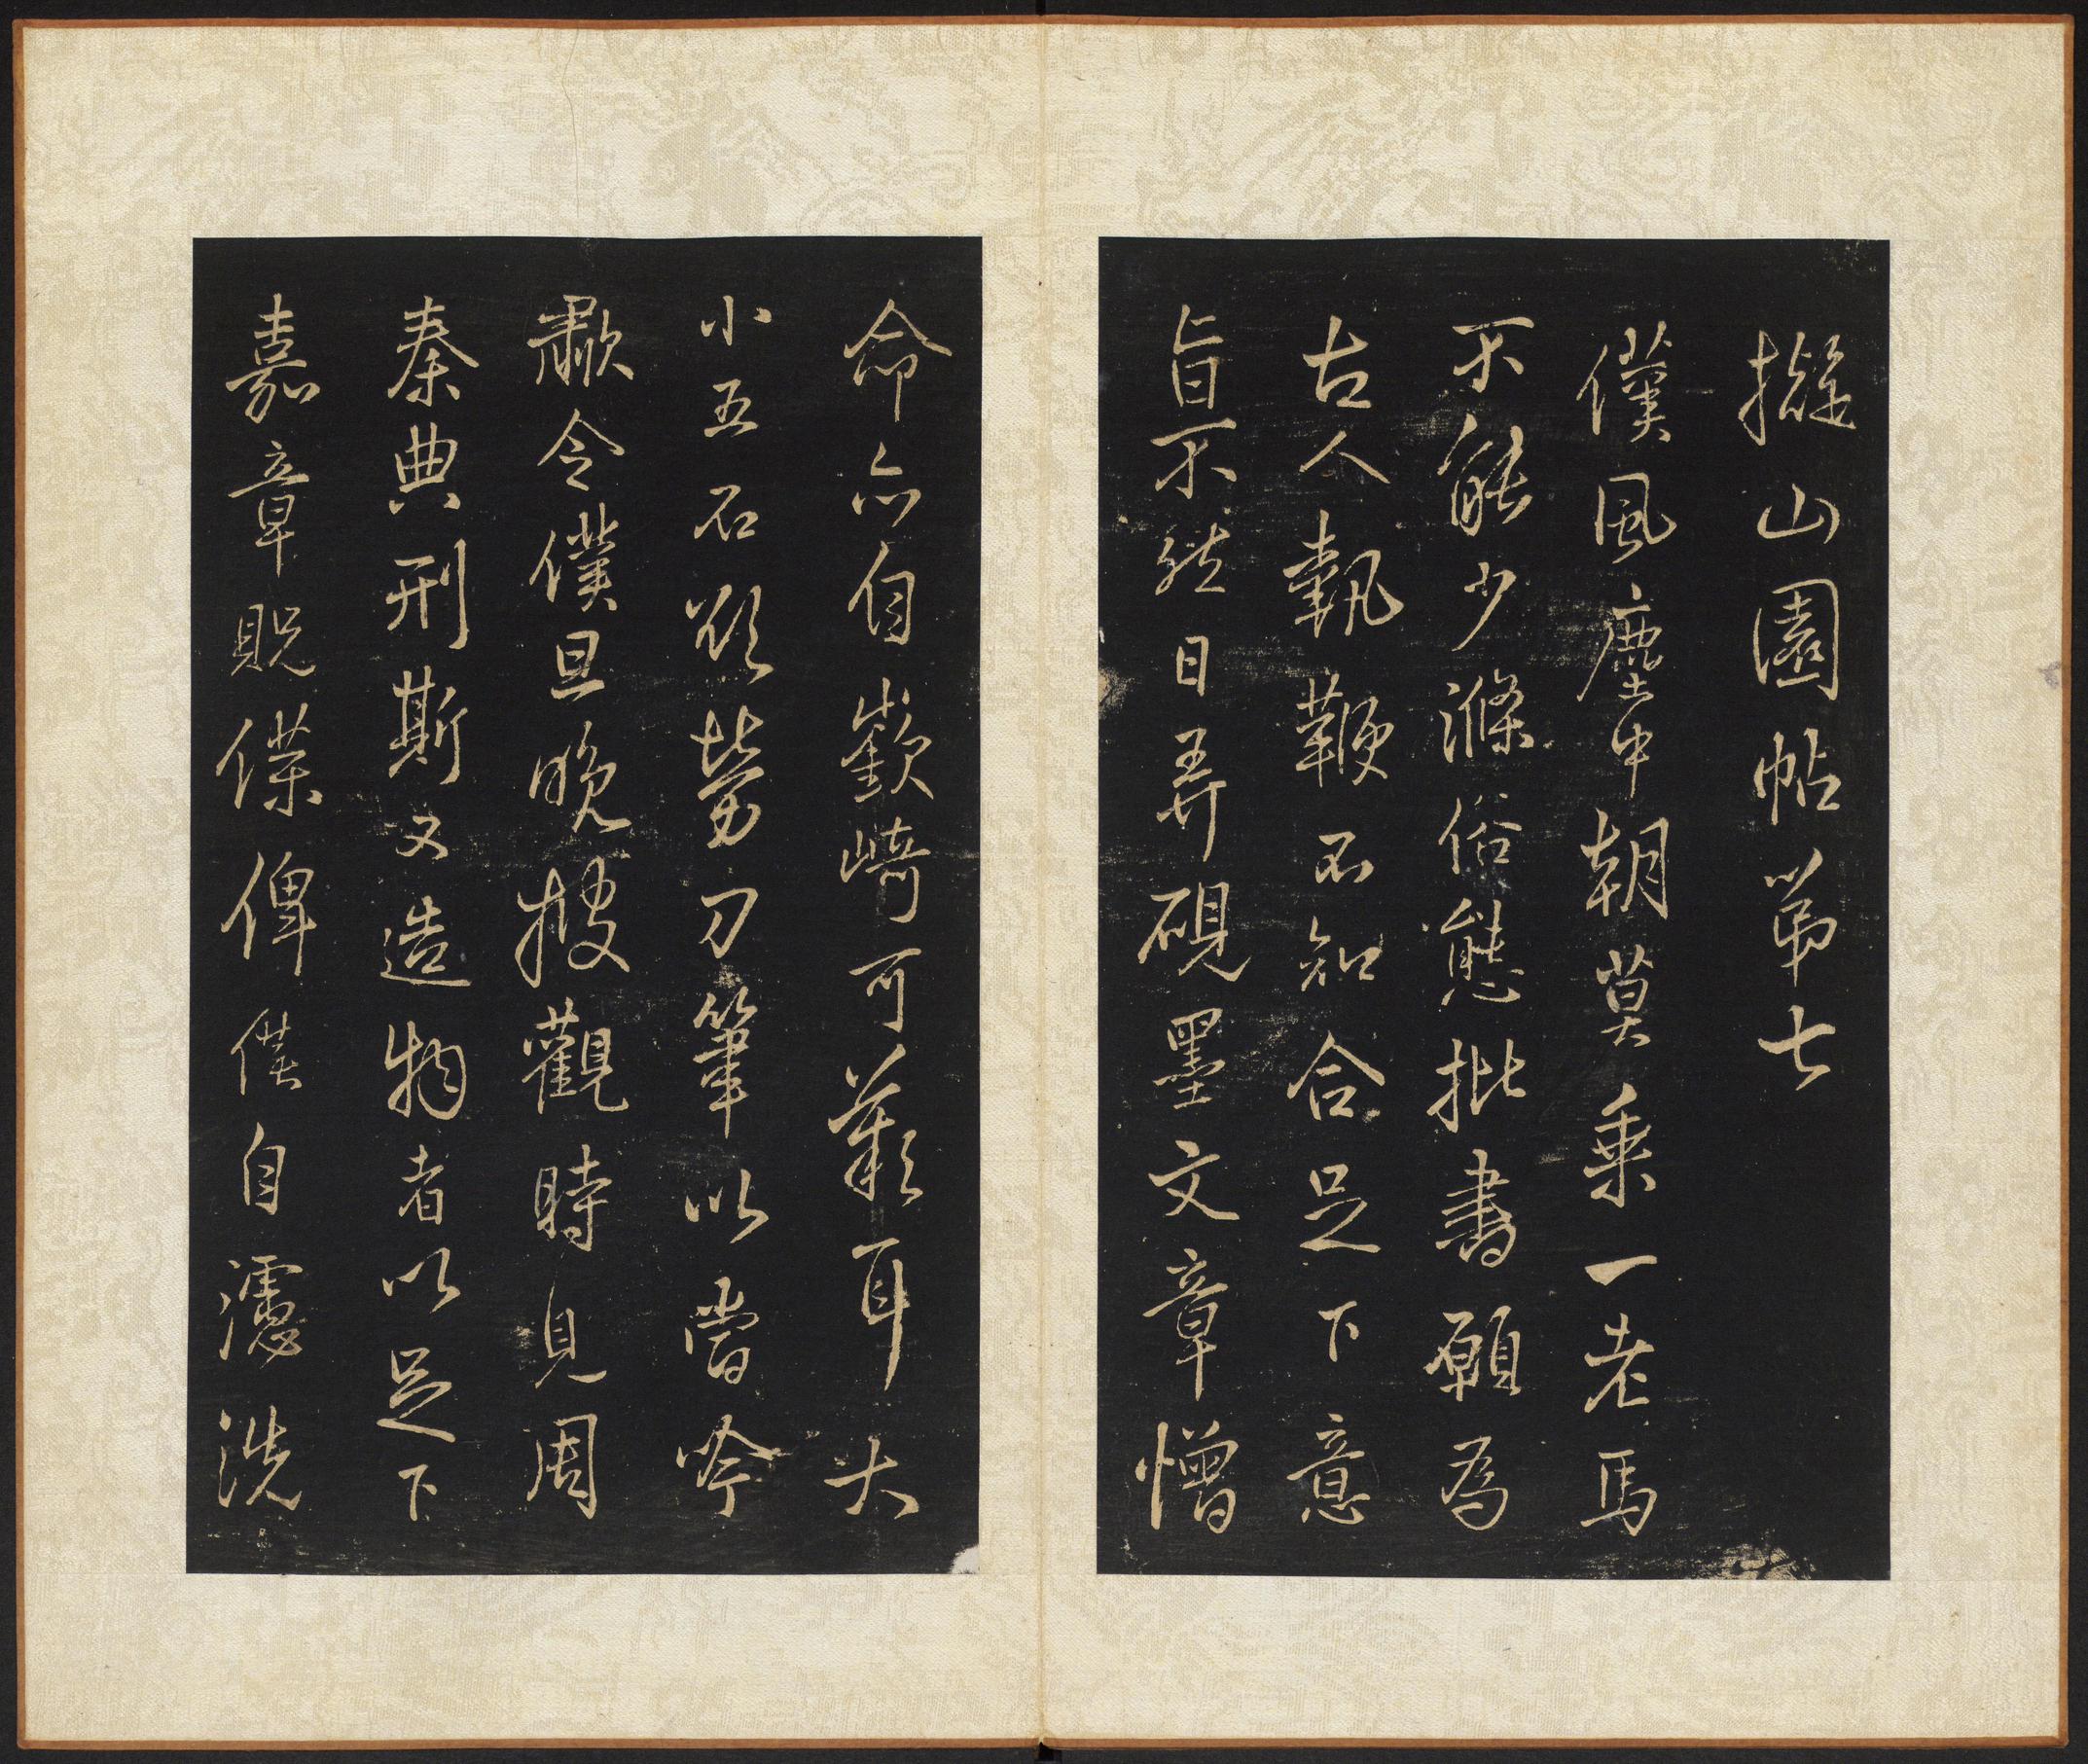 擬山園帖第七
僕風塵中朝莫乘一老馬
不能少滌俗態批書願為
古人執鞭不知合足下意
旨不然日弄硯墨文章憎
命亦自嶔崎可嘆耳大
小五石欲勞刀筆以當吟
歗令僕旦晚披觀時見周
秦典刑斯又造物者以足下
嘉章貺僕俾僕自濾洗